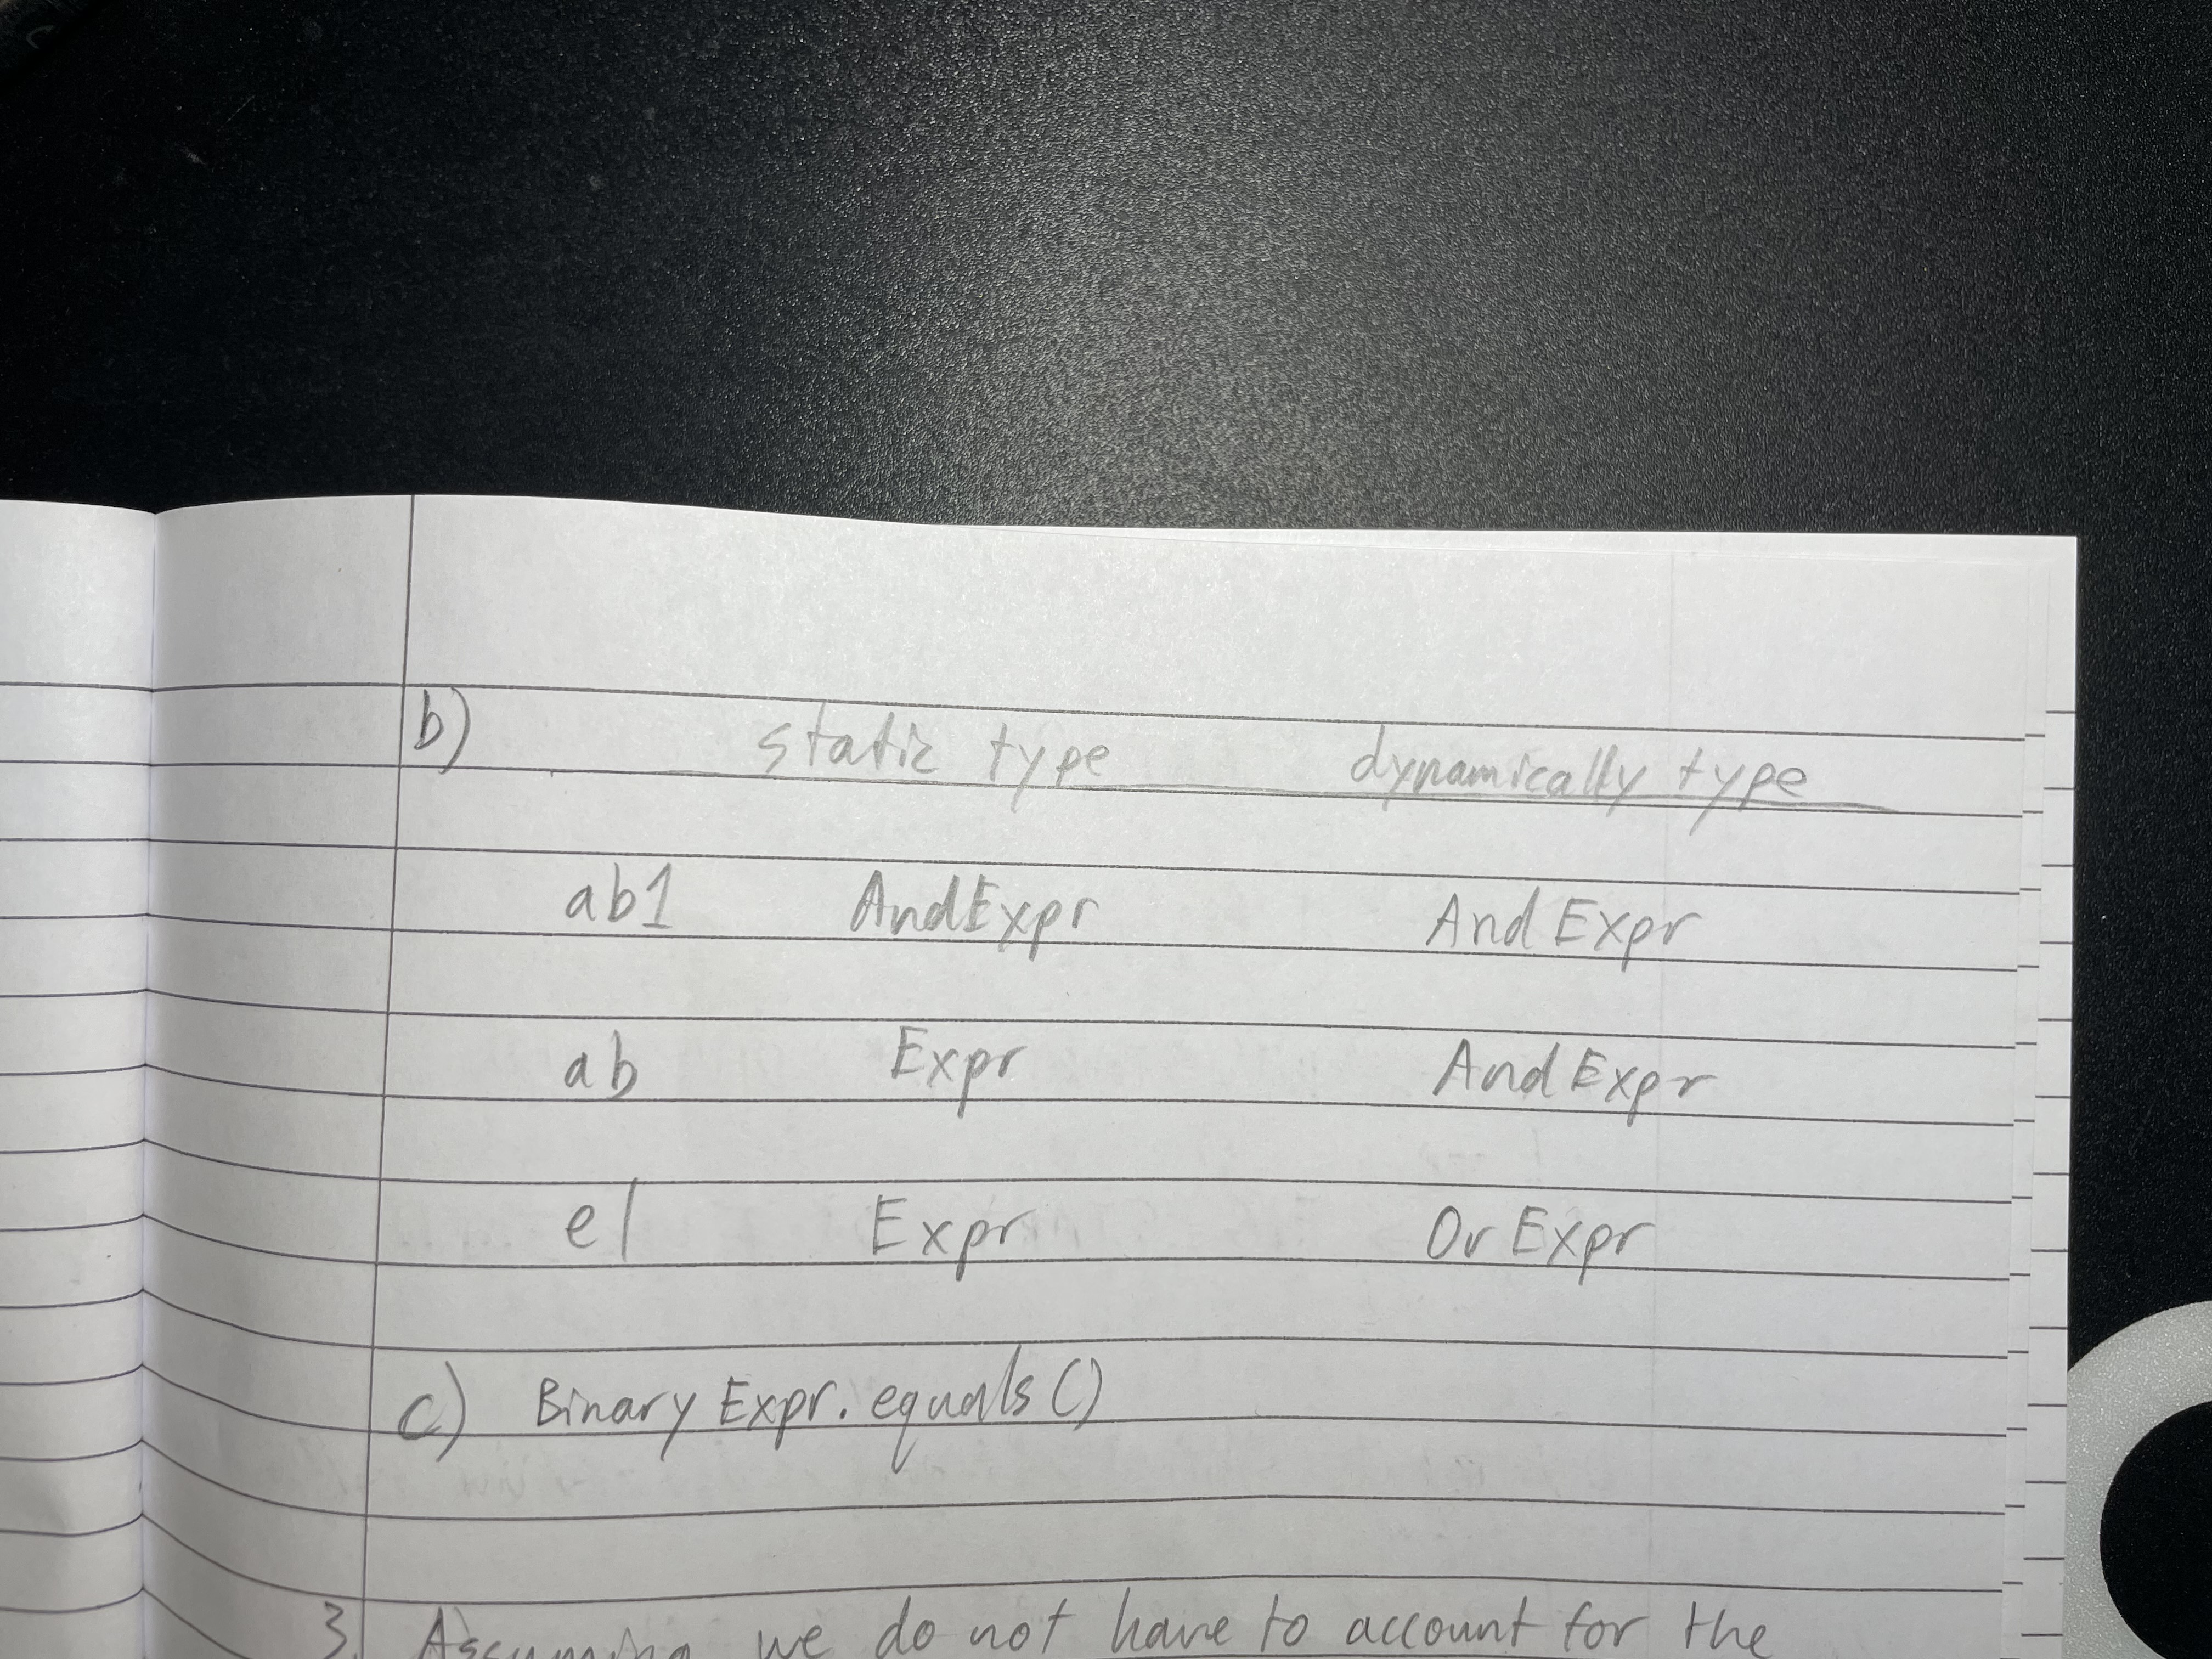 b) static type dynamically type
ab1 AndExpr AndExpr
ab Expr AndExpr
e1 Expr OrExpr
c) Binary Expr. equals ()
3. Assuming we do not have to account for the